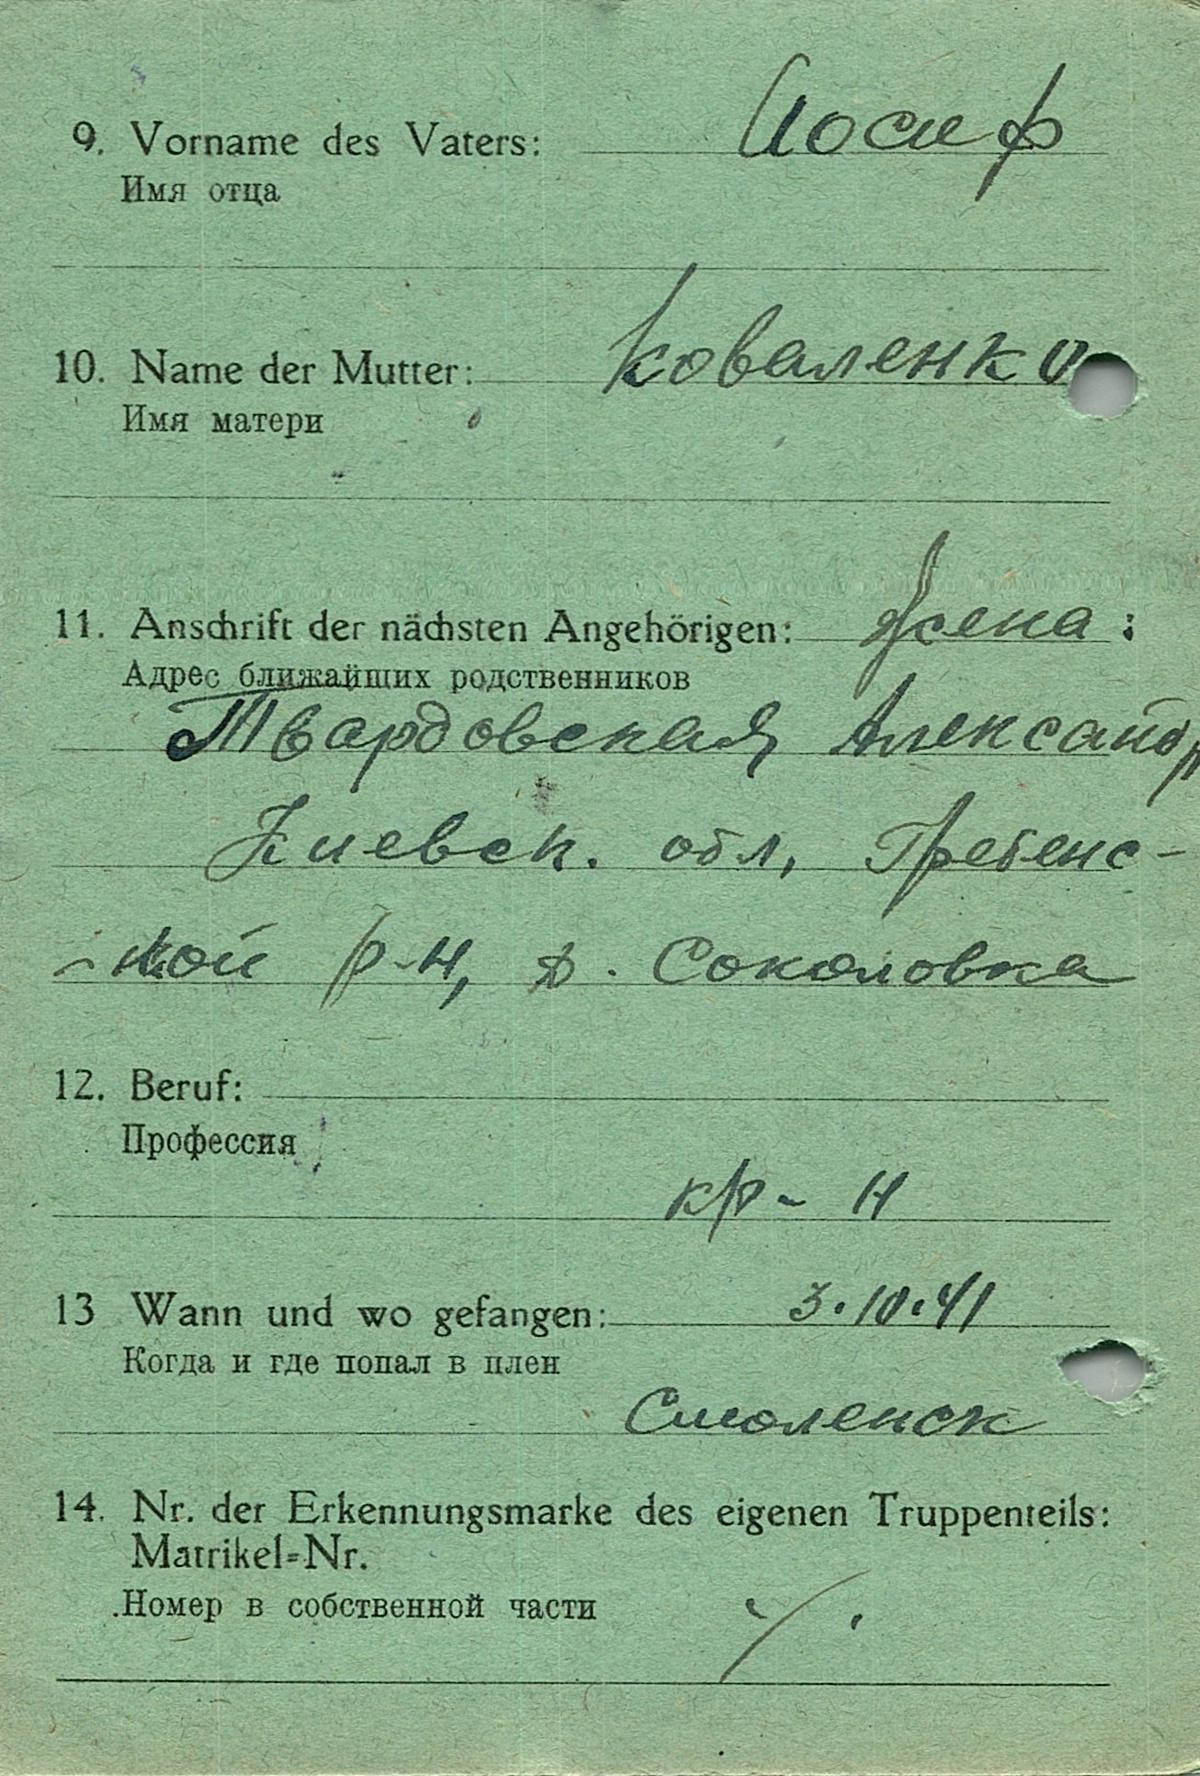 9. Vorname des Vaters: Иосиф
Имя отца
10. Name der Mutter: Коваленко
Имя матери
11. Anschrift der nächsten Angehörigen: Жена:
Адрес ближайших родственников
Твардовская Александр
Киевск. обл, Гребенс-
-кой р-н, д. Соколовка
12. Beruf:
Профессия
кр-н
13 Wann und wo gefangen: 3.10.41
Когда и где попал в плен
Смоленск
14. Nr. der Erkennungsmarke des eigenen Truppenteils:
Matrikel-Nr.
Номер в собственной части